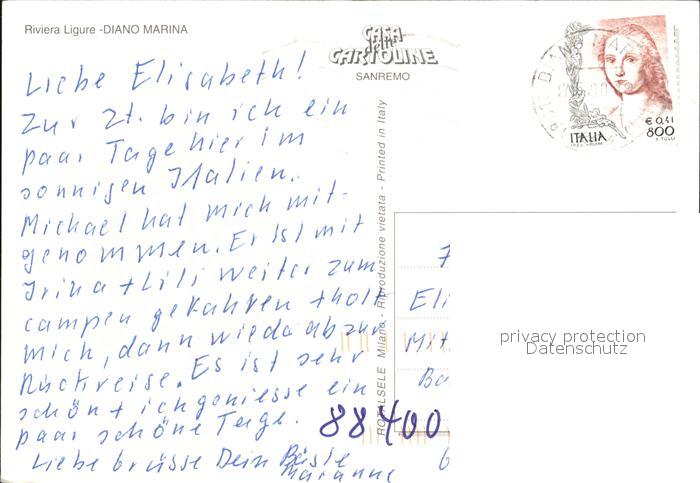 Riviera Ligure -DIANO MARINA
CASA
delle
CARTOLINE
SANREMO
Liebe Elisabeth!
Zur Zt. bin ich ein
paar Tage hier im
sonnigen Italien.
Michael hat mich mit-
genommen. Er ist mit
Irina + Lili weiter zum
campen gefahren + holt
mich, dann wieder ab zur
Rückreise. Es ist sehr
schön + ich geniesse ein
paar schöne Tage.
Liebe Grüsse Dein Bäsle
Marianne
ROTALSELE Milano - Riproduzione vietata - Printed in Italy
€ 0,41
ITALIA 800
F. TULLI
Eli
Mit
88400
privacy protection
Datenschutz